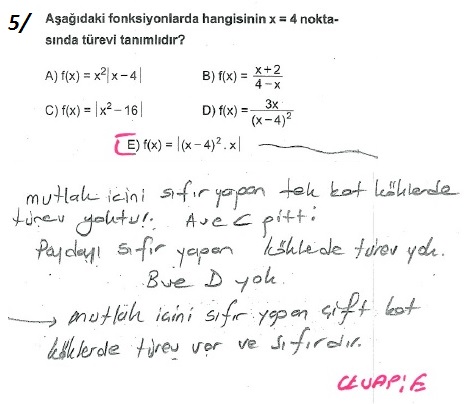 5/ Aşağıdaki fonksiyonlarda hangisinin x = 4 nokta-
sında türevi tanımlıdır?
A) f(x) = x²|x – 4|
B) f(x) = \frac{x+2}{4–x}
C) f(x) = |x² – 16|
D) f(x) = \frac{3x}{(x–4)²}
E) f(x) = |(x – 4)² . x|
mutlak içini sıfır yapan tek kat köklerde
türev yoktur. A ve C gitti.
Paydayı sıfır yapan köklede türev yok.
B ve D yok.
→ mutlak içini sıfır yapan çift kat
köklerde türev var ve sıfırdır.
CEVAP: E